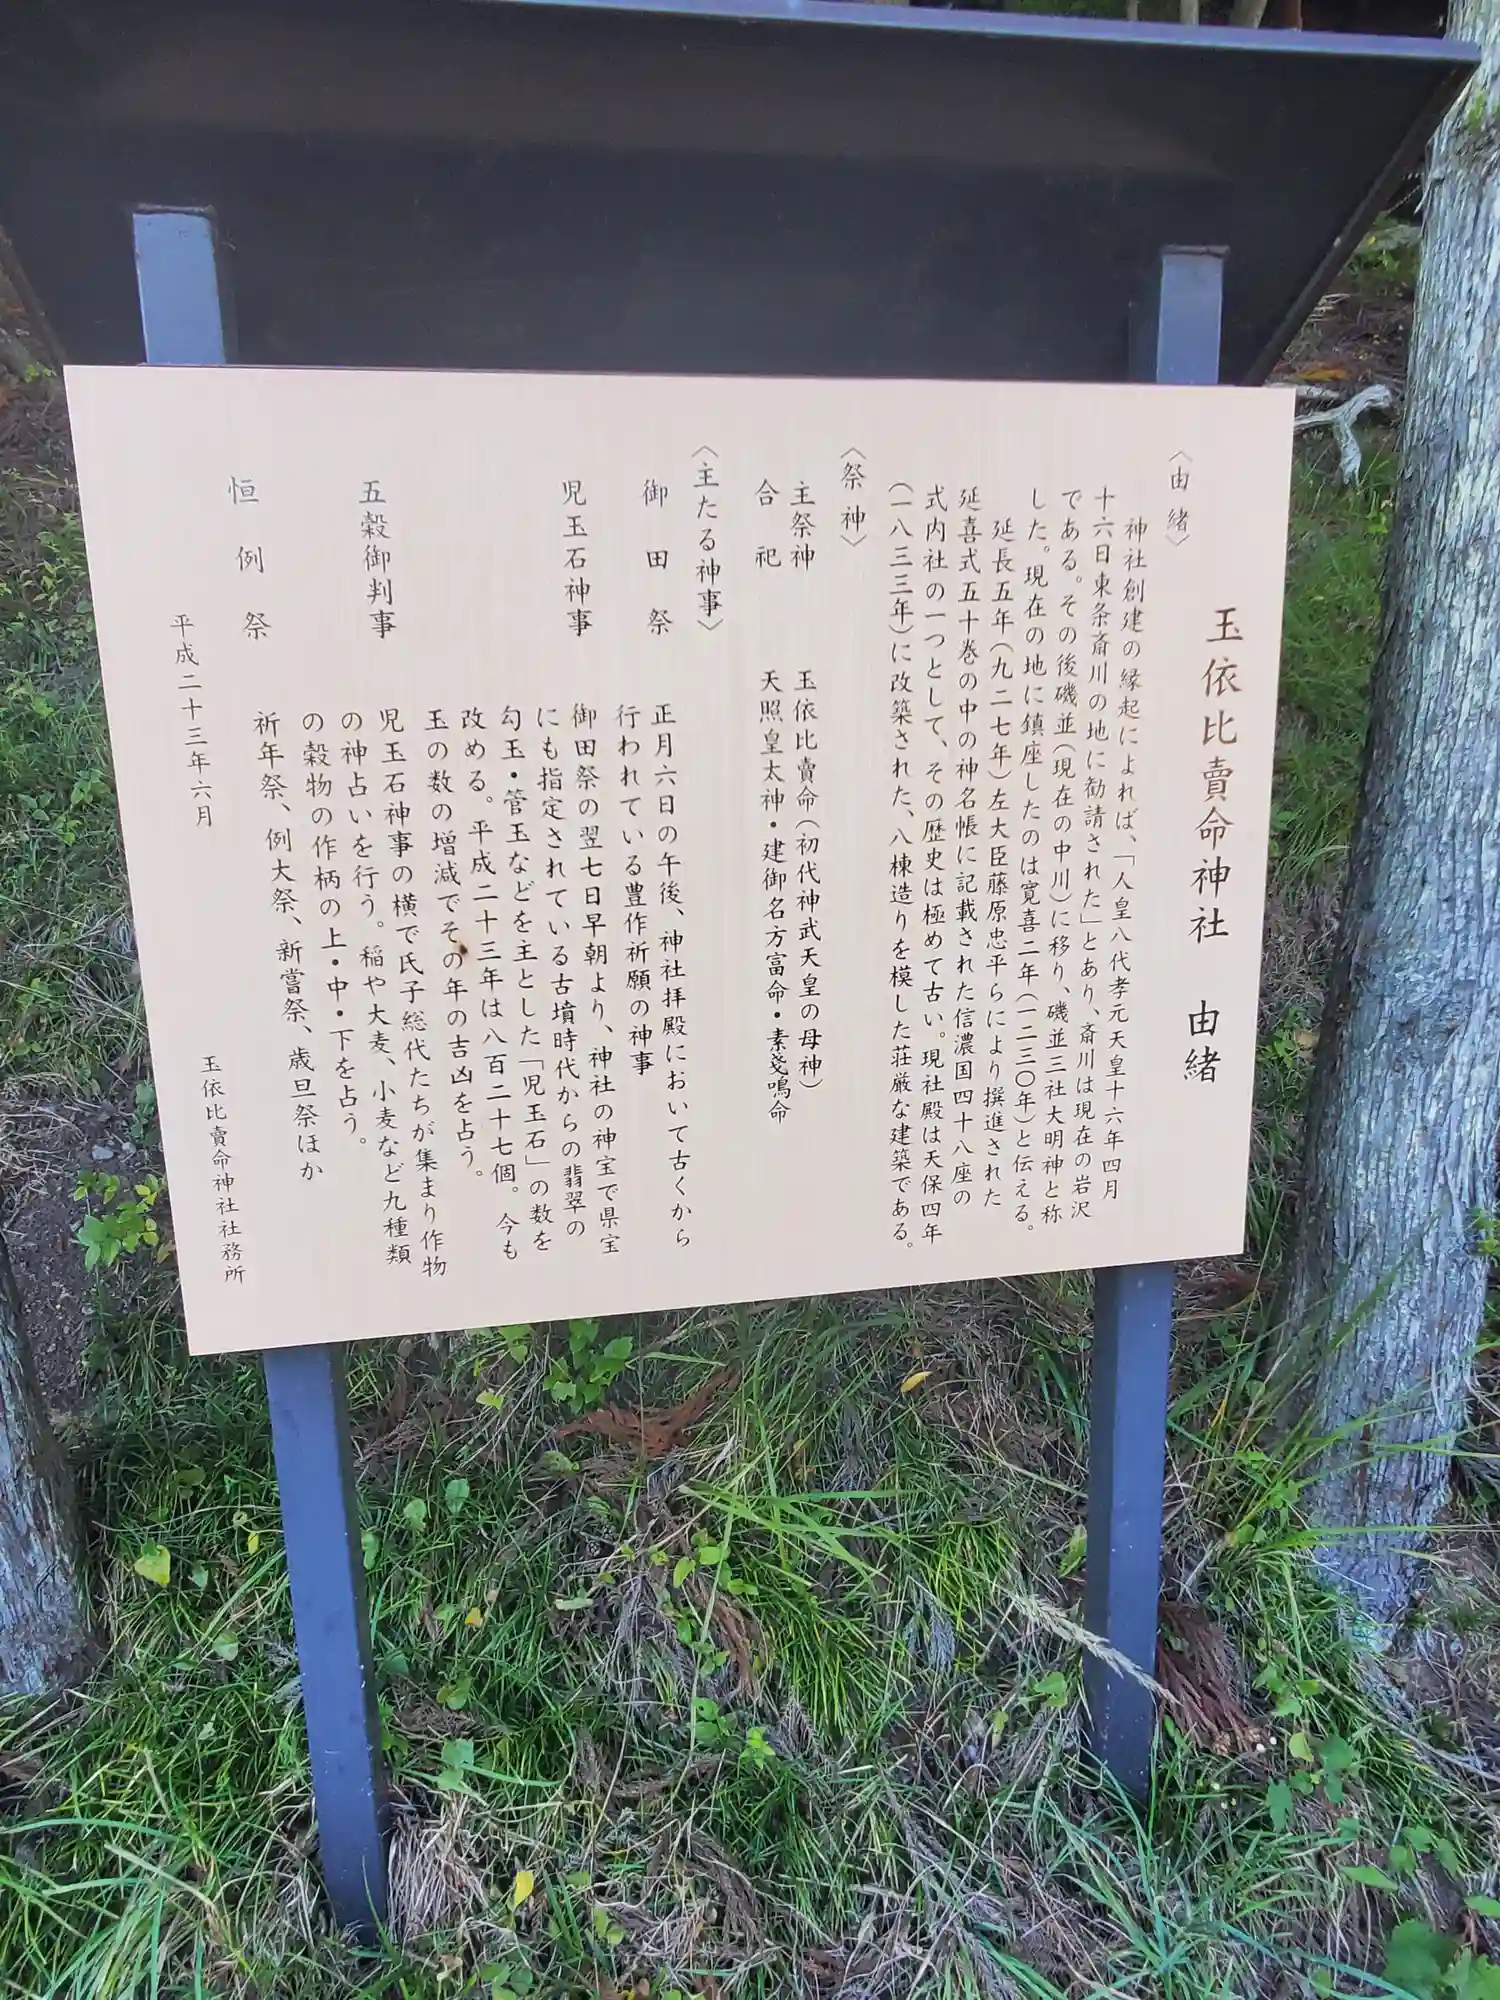 玉依比賣命神社 由緒
〈由緒〉
神社創建の縁起によれば、「人皇八代孝元天皇十六年四月
十六日東条斎川の地に勧請された」とあり、斎川は現在の岩沢
である。その後磯並（現在の中川）に移り、磯並三社大明神と称
した。現在の地に鎮座したのは寛喜二年（一二三〇年）と伝える。
延長五年（九二七年）左大臣藤原忠平らにより撰進された
延喜式五十巻の中の神名帳に記載された信濃国四十八座の
式内社の一つとして、その歴史は極めて古い。現社殿は天保四年
（一八三三年）に改築された、八棟造りを模した荘厳な建築である。
〈祭神〉
主祭神 玉依比賣命（初代神武天皇の母神）
合祀 天照皇太神・建御名方富命・素戔鳴命
〈主たる神事〉
御田祭 正月六日の午後、神社拝殿において古くから
行われている豊作祈願の神事
児玉石神事 御田祭の翌七日早朝より、神社の神宝で県宝
にも指定されている古墳時代からの翡翠の
勾玉・管玉などを主とした「児玉石」の数を
改める。平成二十三年は八百二十七個。今も
玉の数の増減でその年の吉凶を占う。
五穀御判事 児玉石神事の横で氏子総代たちが集まり作物
の神占いを行う。稲や大麦、小麦など九種類
の穀物の作柄の上・中・下を占う。
恒例祭 祈年祭、例大祭、新嘗祭、歳旦祭ほか
平成二十三年六月
玉依比賣命神社社務所